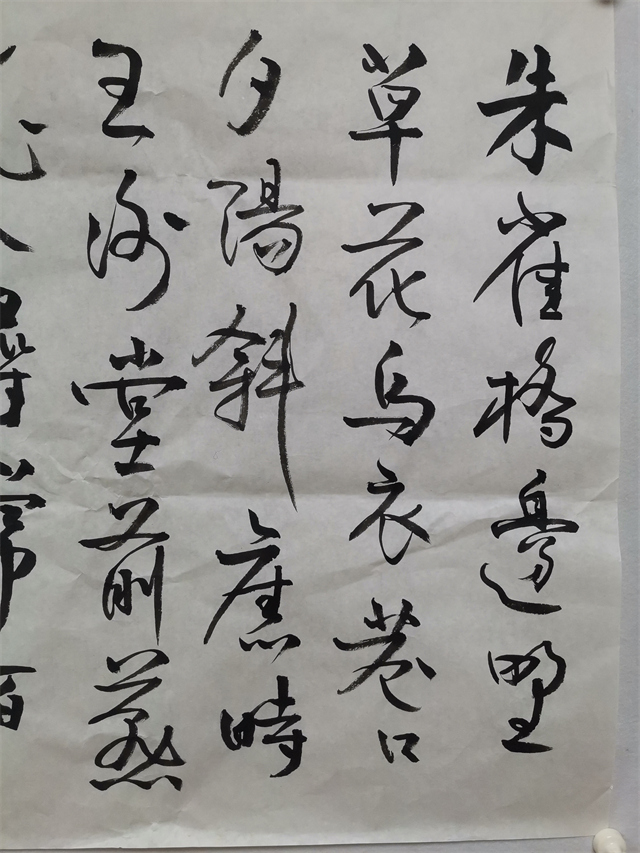 朱雀橋邊野
草花烏衣巷口
夕陽斜應時
王謝堂前燕
尋常百